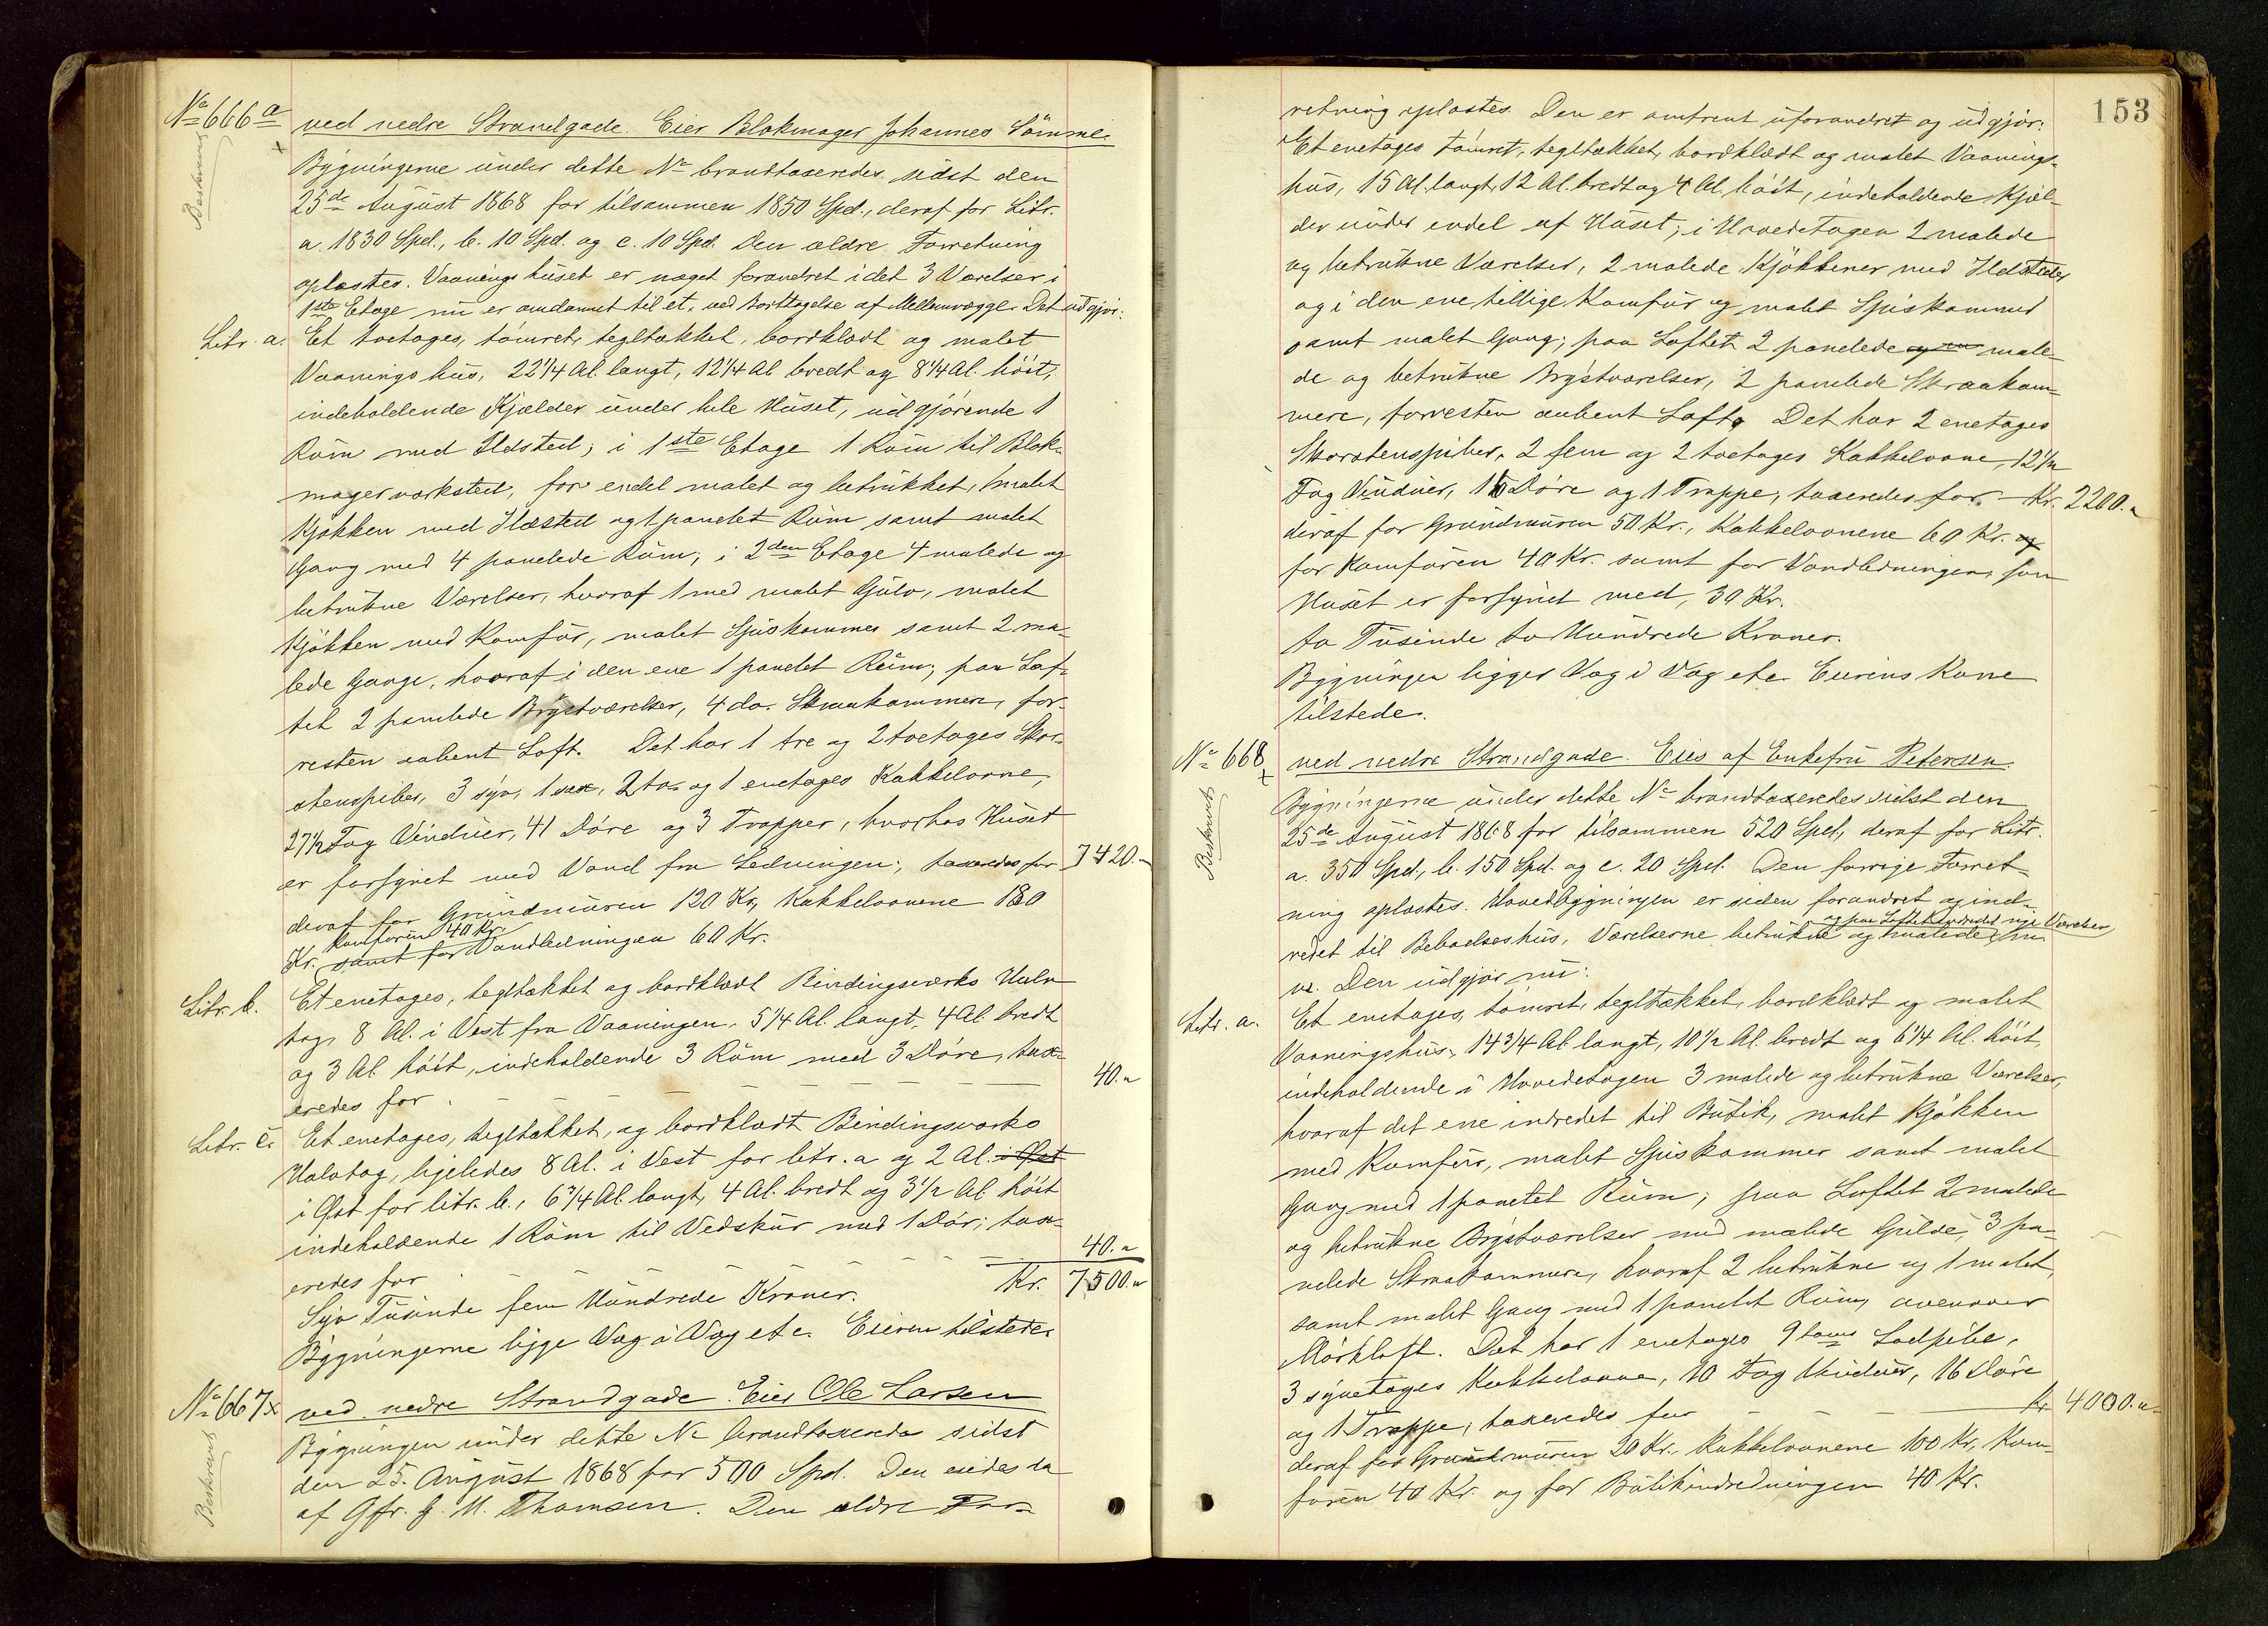 No 666 a
ved nedre Strandgade. Eier Blokmager Johannes Sømme.
Beskrevet
Bygningerne under dette No brandtaxeredes sidst den
25de August 1868 for tilsammen 1850 Spd., deraf for Litr.
a. 1830 Spd., b. 10 Spd. og c. 10 Spd. Den ældre Forretning
oplæstes. Vaaningshuset er noget forandret idet 3 Værelser i
1ste Etage nu er omdannet til et, ved Borttagelse af Mellemvægge. Det udgjør:
Litr. a. Et toetages, tømret, tegltækket, bordklædt og malet
Vaaningshus, 22 1/4 Al. langt, 12 1/4 Al. bredt og 8 1/4 Al. høit,
indeholdende Kjælder under hele Huset, udgjørende 1
Rum med Ildsted; i 1ste Etage 1 Rum til Blok-
magerværksted, for endel malet og betrukket, 1 malet
Kjøkken med Ildsted og 1 panelet Rum samt malet
Gang med 4 panelede Rum; i 2den Etage 4 malede og
betrukne Værelser, hvoraf 1 med malet Gulv, malet
Kjøkken med Komfur, malet Spiskammer samt 2 ma-
lede Gange, hvoraf i den ene 1 panelet Rum; paa Lof-
tet 2 panelede Brystværelser, 4 do. Skraakammere, for-
resten aabent Loft. Det har 1 tre og 2 toetages Skor-
stenspiber, 3 syv, 1 sex, 2 to og 1 enetages Kakkelovne,
27 1/2 Fag Vinduer, 41 Døre og 3 Trapper, hvorhos Huset
er forsynet med Vand fra Ledningen; taxeredes for 7420.-
deraf for Grundmuren 120 Kr, Kakkelovnene 180
Komfuren 40 Kr.
Kr. samt for Vandledningen 60 Kr.
Litr. b. Et enetages, tegltækket og bordklædt Bindingsværks Halv-
tag, 8 Al. i Vest fra Vaaningen, 5 1/4 Al. langt, 4 Al. bredt
og 3 Al. høit, indeholdende 3 Rum med 3 Døre, tax-
eredes for 40.-
Litr. c. Et enetages, tegltækket, og bordklædt Bindingsværks
Halvtag, ligeledes 8 Al. i Vest for litr. a og 2 Al. i Øst
i Øst for litr. b., 6 3/4 Al. langt, 4 Al. bredt og 3 1/2 Al. høit
indeholdende 1 Rum til Vedskur med 1 Dør; tax-
eredes for 40.-
Kr. 7500.-
Syv Tusinde fem Hundrede Kroner.
Bygningerne ligge Væg i Væg etc. Eieren tilstede.
No 667 x
ved nedre Strandgade. Eier Ole Larsen
Beskrevet
Bygningen under dette No brandtaxeredes sidst
den 25. August 1868 for 500 Spd. Den eiedes da
af Gfr. J. M. Thomsen. Den ældre For-
153
retning oplæstes. Den er omtrent uforandret og udgjør:
Et enetages tømret, tegltækket, bordklædt og malet Vaanings-
hus, 15 Al. langt, 12 Al. bredt og 4 Al. høit, indeholdende Kjæl-
der under endel af Huset; i Hovedetagen 2 malede
og betrukne Værelser, 2 malede Kjøkkener med Ildsteder
og i den ene tillige Komfur og malet Spiskammer
samt malet Gang; paa Loftet 2 panelede og m male-
de og betrukne Brystværelser, 2 panelede Skraakam-
mere, forresten aabent Loft. Det har 2 enetages
Skorstenspiber, 2 fem og 2 toetages Kakkelovne, 12 1/2
Fag Vinduer, 16 Døre og 1 Trappe; taxeredes for Kr. 2200.-
deraf for Grundmuren 50 Kr., Kakkelovnene 60 Kr. og
for Komfuren 40 Kr. samt for Vandledningen, som
Huset er forsynet med, 30 Kr.
to Tusinde to Hundrede Kroner.
Bygningen ligger Væg i Væg etc. Eierens Kone
tilstede.
No 668 x
ved nedre Strandgade. Eies af Enkefru Petersen.
Beskrevet
Bygningerne under dette No brandtaxeredes sidst den
25de August 1868 for tilsammen 520 Spd., deraf for Litr.
a. 350 Spd., b. 150 Spd. og c. 20 Spd. Den forrige Forret-
ning oplæstes. Hovedbygningen er siden forandret og ind-
og paa Loftet indredet nye Værelser
redet til Beboelseshus, Værelserne betrukne og malede
Den udgjør nu:
Litr. a. Et enetages, tømret, tegltækket, bordklædt og malet
Vaaningshus, 14 3/4 Al. langt, 10 1/2 Al. bredt og 6 1/4 Al. høit,
indeholdende i Hovedetagen 3 malede og betrukne Værelser,
hvoraf det ene indredet til Butik, malet Kjøkken
med Komfur, malet Spiskammer samt malet
Gang med 1 panelet Rum; paa Loftet 2 malede
og betrukne Brystværelser med malede Gulve, 3 pa-
nelede Skraakammere, hvoraf 2 betrukne og 1 malet,
samt malet Gang med 1 panelet Rum, ovenover
Mørkloft. Det har 1 enetages 9 toms Lodpibe,
3 syvetages Kakkelovne, 10 Fag Vinduer, 16 Døre
og 1 Trappe; taxeredes for Kr. 4000.-
deraf for Grundmuren 20 Kr., Kakkelovnene 100 Kr, Kom-
furen 40 Kr. og for Butikindredningen 40 Kr.